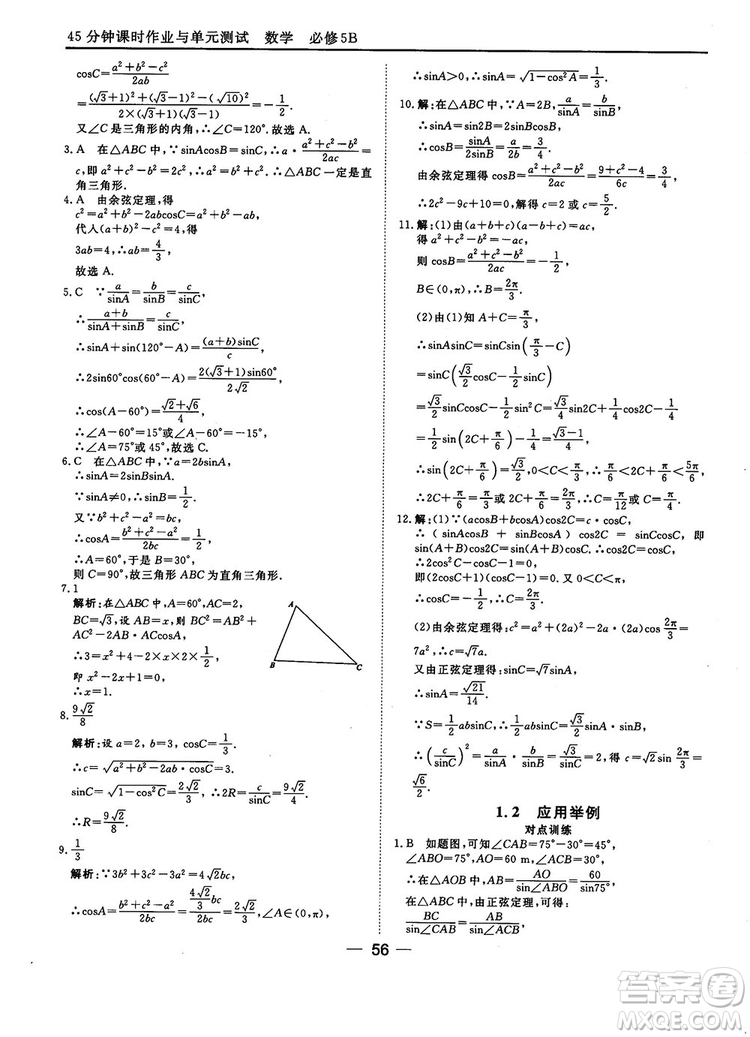 45分钟课时作业与单元测试 数学 必修5B
cosC=(a²+b²-c²)/(2ab)
=((√3+1)²+(√3-1)²-(√10)²)/(2×(√3+1)(√3-1))=-1/2.
又∠C是三角形的内角,∴∠C=120°.故选A.
3.A 在△ABC中,∵sinAcosB=sinC,∴a·(a²+c²-b²)/(2ac)=
c,即a²+c²-b²=2c²,∴a²=b²+c²,∴△ABC一定是直
角三角形.
4.A 由余弦定理,得
c²=a²+b²-2abcosC=a²+b²-ab,
代入(a+b)²-c²=4,得
3ab=4,∴ab=4/3,
故选A.
5.C ∵a/sinA=b/sinB=c/sinC,
∴(a+b)/(sinA+sinB)=c/sinC,
∴sinA+sin(120°-A)=(a+b)sinC/c,
∴2sin60°cos(60°-A)=2(√3+1)sin60°/(2√2),
∴cos(A-60°)=(√2+√6)/4,
∴∠A-60°=15°或∠A-60°=-15°,
∴∠A=75°或45°,故选C.
6.C 在△ABC中,∵a=2bsinA,
∴sinA=2sinBsinA.
∵sinA≠0,∴sinB=1/2.
∵b²+c²-a²=bc,
∴cosA=(b²+c²-a²)/(2bc)=1/2,
∴A=60°,于是B=30°,
则C=90°,故三角形ABC为直角三角形.
7.1
解析:在△ABC中,A=60°,AC=2,
BC=√3,设AB=x,由余弦定理可得BC²=AB²+
AC²-2AB·ACcosA,
∴3=x²+4-2·x·2·1/2,
即x²-2x+1=0,
∴x=1.
A
B
C
8.9√2/8
解析:设a=2,b=3,cosC=1/3.
∴c=√(a²+b²-2ab·cosC)=3.
sinC=√(1-cos²C)=2√2/3,∴2R=c/sinC=9√2/4,∴R=
9√2/8.
9.1/3
解析:∵3b²+3c²-3a²=4√2bc,∴b²+c²-a²=4√2/3 bc,
∴cosA=(b²+c²-a²)/(2bc)=(4√2/3 bc)/(2bc)=2√2/3,∠A∈(0,π),
∴sinA>0,∴sinA=√(1-cos²A)=1/3.
10.解:在△ABC中,∵A=2B,a/sinA=b/sinB,
∴sinA=sin2B=2sinBcosB,
∴cosB=sinA/(2sinB)=a/(2b)=3/4.
由余弦定理得cosB=(a²+c²-b²)/(2ac)=(9+c²-4)/(6c)=3/4,
∴2c²-9c+10=0,解得c=2或c=5/2.
11.解:(1)由(a+b+c)(a-b+c)=ac,
得a²+c²-b²=-ac,
则cosB=(a²+c²-b²)/(2ac)=-1/2,
B∈(0,π),∴B=2π/3.
(2)由(1)知A+C=π/3
∴sinAsinC=sinCsin(π/3-C)
=sinC(√3/2cosC-1/2sinC)
=√3/2sinCcosC-1/2sin²C=√3/4sin2C+1/4cos2C-1/4
=1/2sin(2C+π/6)-1/4=(√3-1)/4,
∴sin(2C+π/6)=√3/2,0<C<π/3,π/6<2C+π/6<5π/6,
∴2C+π/6=π/3或2C+π/6=2π/3,∴C=π/12或C=π/4.
12.解:(1)∵(acosB+bcosA)cos2C=c·cosC,
∴(sinAcosB+sinBcosA)cos2C=sinCcosC,即
sin(A+B)cos2C=sinCcosC.∵sin(A+B)=sinC,
∴2cos²C-1=cosC.
即(2cosC+1)(cosC-1)=0.又∵C∈(0,π),
∴cosC=-1/2,∴C=2π/3.
(2)由余弦定理得:c²=a²+(2a)²-2a(2a)cos2π/3=
7a²,∴c=√7a.
又由正弦定理得:sinC=√7sinA,
∴sinA=√21/14.
∵S=1/2absinC=1/2sinA·sinB,
∴(c/sinC)²=a/sinA·b/sinB=1/sinC,得c=√2sinC=
√6/2.
1.2 应用举例
对点训练
1.B 如题图,可知∠CAB=75°-30°=45°,
∠ABO=75°,AO=60 m,
∴在△AOB中,AB=AO/sin∠ABO=60/sin75°,
在△ABC中,由正弦定理得,
BC/sin∠CAB=AB/sin∠ACB,
56
作业帮
ZUOYEDAAN.COM